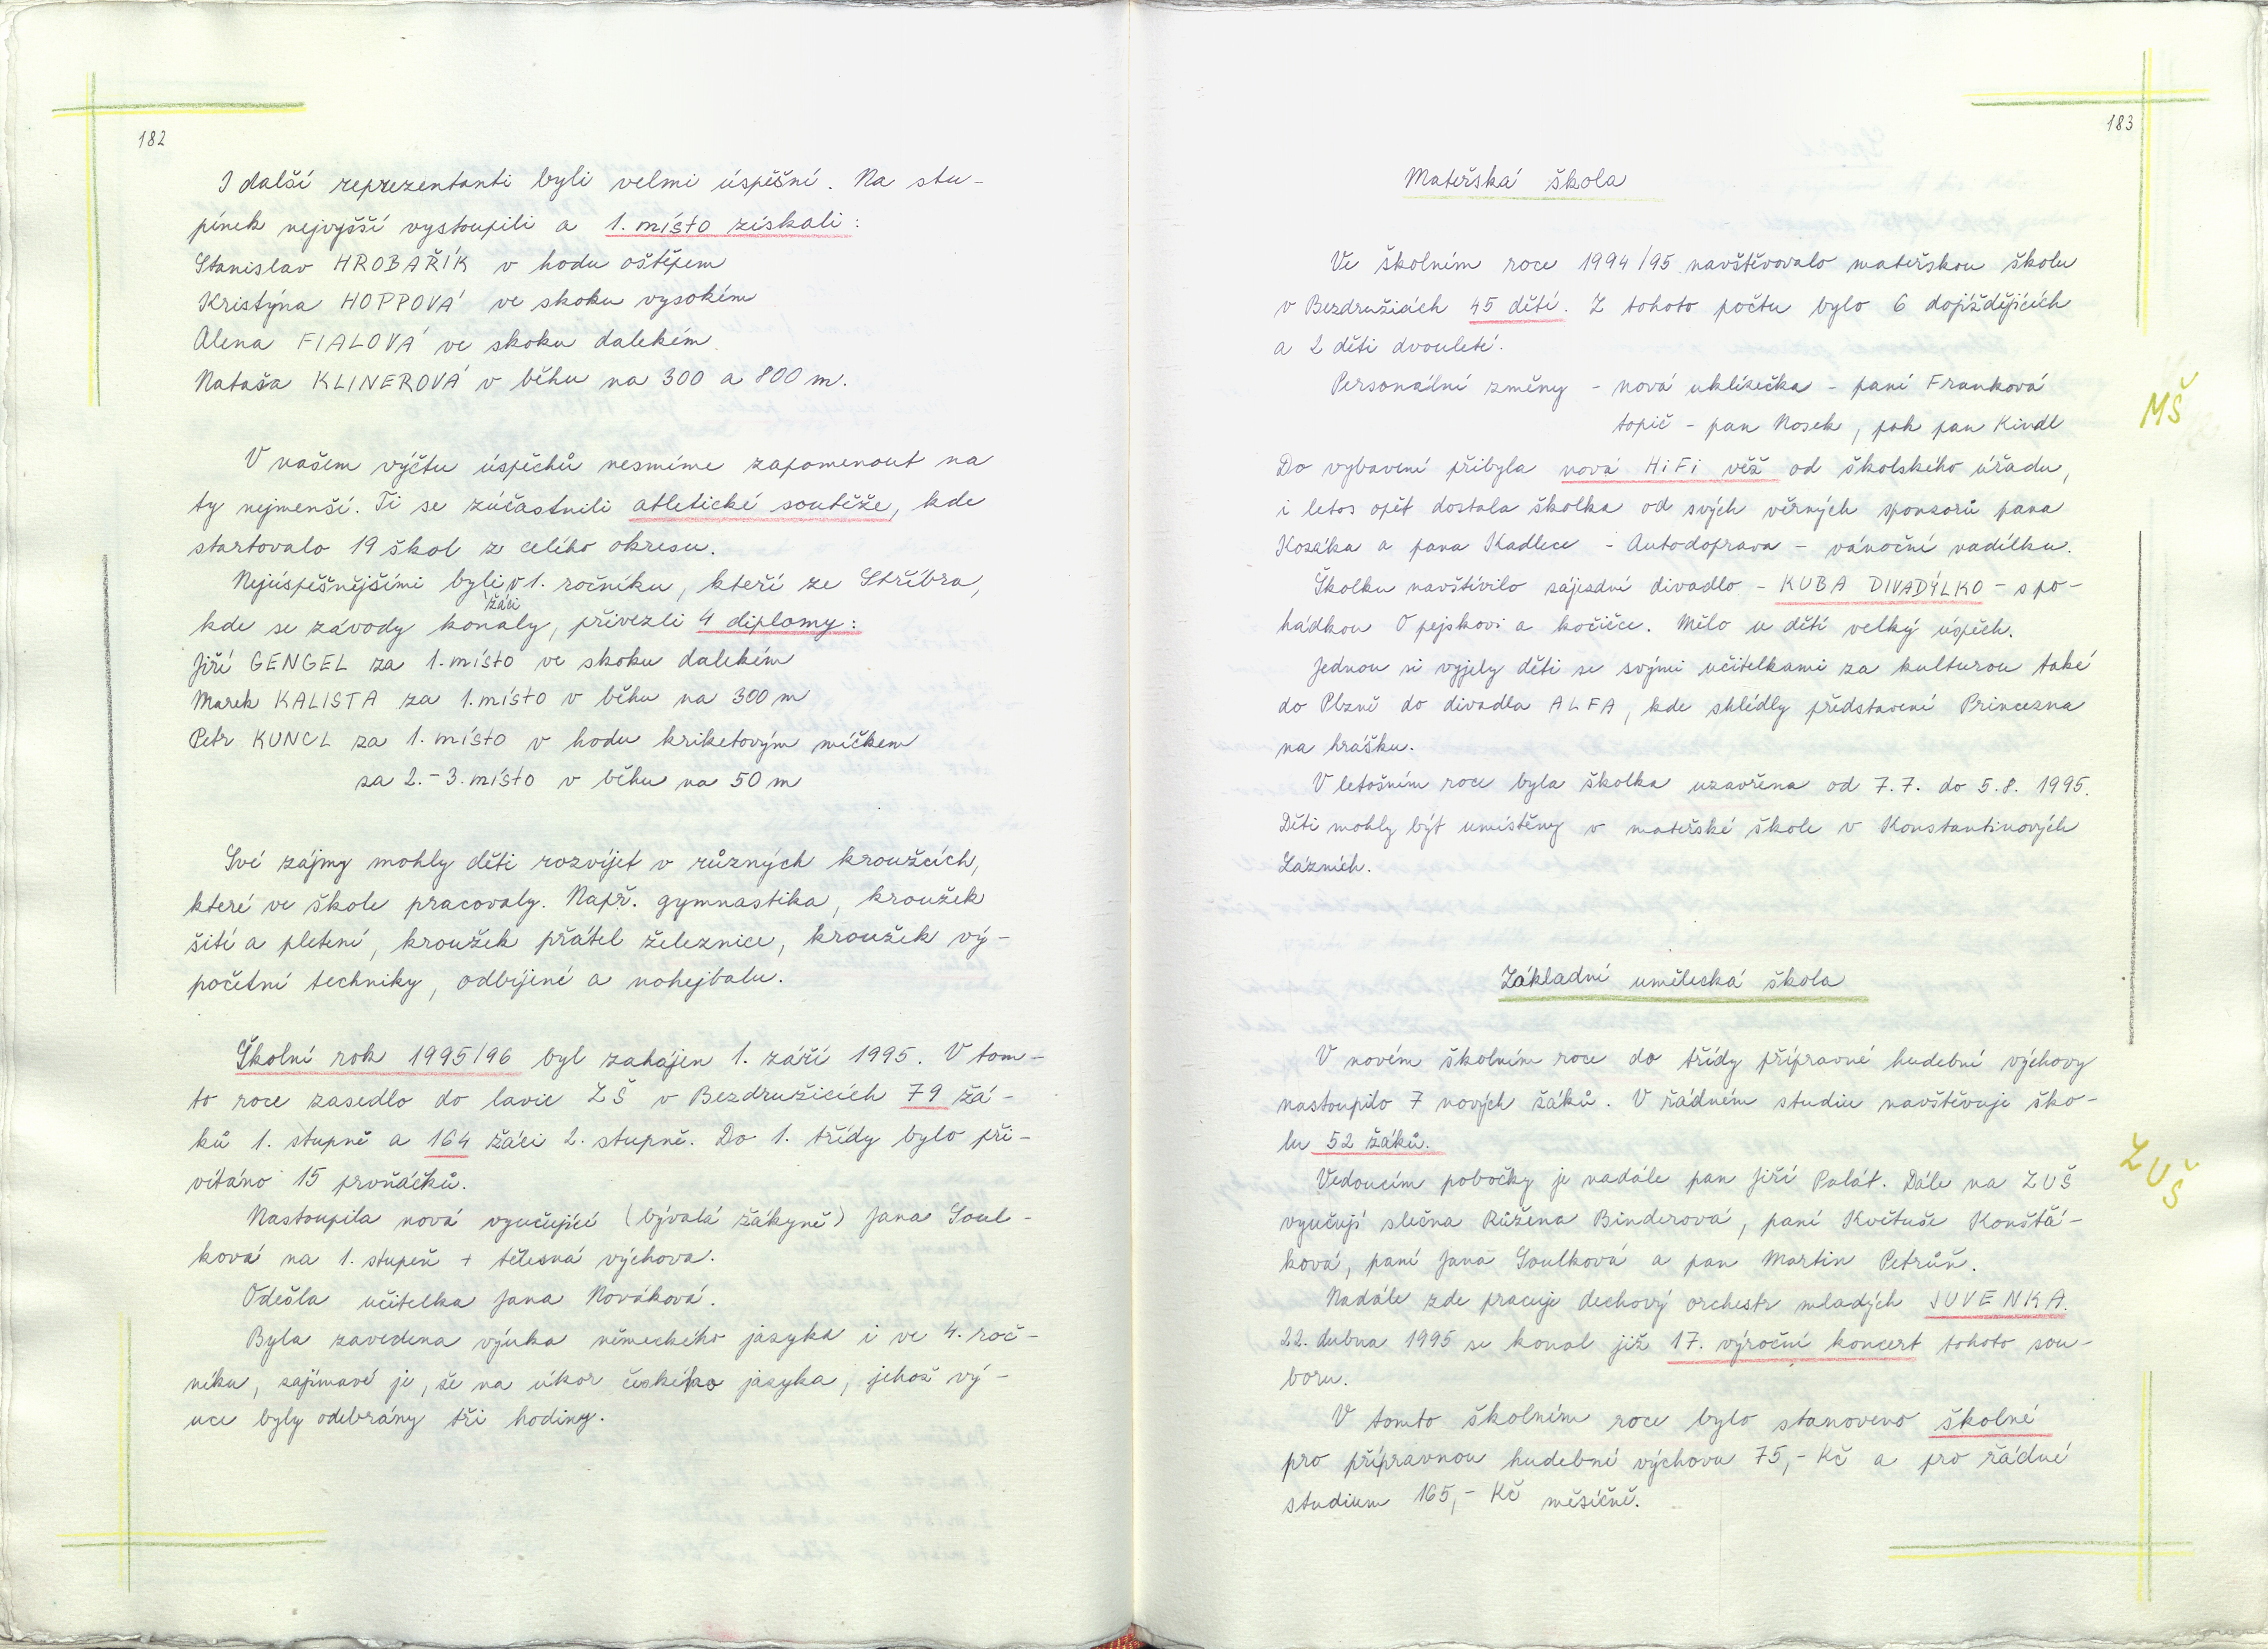 182
I další reprezentanti byli velmi úspěšní. Na stu-
pínek nejvyšší vystoupili a 1. místo získali:
Stanislav HROBAŘÍK v hodu oštěpem
Kristýna HOPPOVÁ ve skoku vysokém
Alena FIALOVÁ ve skoku dalekém
Nataša KLINEROVÁ v běhu na 300 a 800 m.
V našem výčtu úspěchů nesmíme zapomenout na
ty nejmenší. Ti se zúčastnili atletické soutěže, kde
startovalo 19 škol z celého okresu.
Nejúspěšnějšími byli žáci v 1. ročníku, kteří ze Stříbra,
kde se závody konaly, přivezli 4 diplomy:
Jiří GENGEL za 1. místo ve skoku dalekém
Marek KALISTA za 1. místo v běhu na 300 m
Petr KUNCL za 1. místo v hodu kriketovým míčkem
za 2.-3. místo v běhu na 50 m
Své zájmy mohly děti rozvíjet v různých kroužcích,
které ve škole pracovaly. Např. gymnastika, kroužek
šití a pletení, kroužek přátel železnice, kroužek vý-
početní techniky, odbíjené a nohejbalu.
Školní rok 1995/96 byl zahájen 1. září 1995. V tom-
to roce zasedlo do lavic ZŠ v Bezdružicích 79 žá-
ků 1. stupně a 164 žáci 2. stupně. Do 1. třídy bylo při-
vítáno 15 prvňáčků.
Nastoupila nová vyučující (bývalá žákyně) Jana Soul-
ková na 1. stupeň + tělesná výchova.
Odešla učitelka Jana Nováková.
Byla zavedena výuka německého jazyka i ve 4. roč-
níku, zajímavé je, že na úkor českého jazyka, jehož vý-
uce byly odebrány tři hodiny.
183
Mateřská škola
Ve školním roce 1994/95 navštěvovalo mateřskou školu
v Bezdružicích 45 dětí. Z tohoto počtu bylo 6 dojíždějících
a 2 děti dvouleté.
Personální změny - nová uklízečka - paní Franková
topič - pan Nosek, pak pan Kindl
MŠ
Do vybavení přibyla nová HiFi věž od školského úřadu,
i letos opět dostala školka od svých věrných sponzorů pana
Kozáka a pana Kadlece - Autodoprava - vánoční nadílku.
Školku navštívilo zájezdní divadlo - KUBA DIVADÝLKO - s po-
hádkou O pejskovi a kočičce. Mělo u dětí velký úspěch.
Jednou si vyjely děti se svými učitelkami za kulturou také
do Plzně do divadla ALFA, kde shlédly představení Princezna
na hrášku.
V letošním roce byla školka uzavřena od 7.7. do 5.8. 1995.
Děti mohly být umístěny v mateřské škole v Konstantinových
Lázních.
Základní umělecká škola
V novém školním roce do třídy přípravné hudební výchovy
nastoupilo 7 nových žáků. V řádném studiu navštěvuje ško-
lu 52 žáků.
ZUŠ
Vedoucím pobočky je nadále pan Jiří Palát. Dále na ZUŠ
vyučují slečna Růžena Binderová, paní Květuše Konštá-
ková, paní Jana Soulková a pan Martin Petrůň.
Nadále zde pracuje dechový orchestr mladých JUVENKA.
22. dubna 1995 se konal již 17. výroční koncert tohoto sou-
boru.
V tomto školním roce bylo stanoveno školné
pro přípravnou hudební výchovu 75,- Kč a pro řádné
studium 165,- Kč měsíčně.